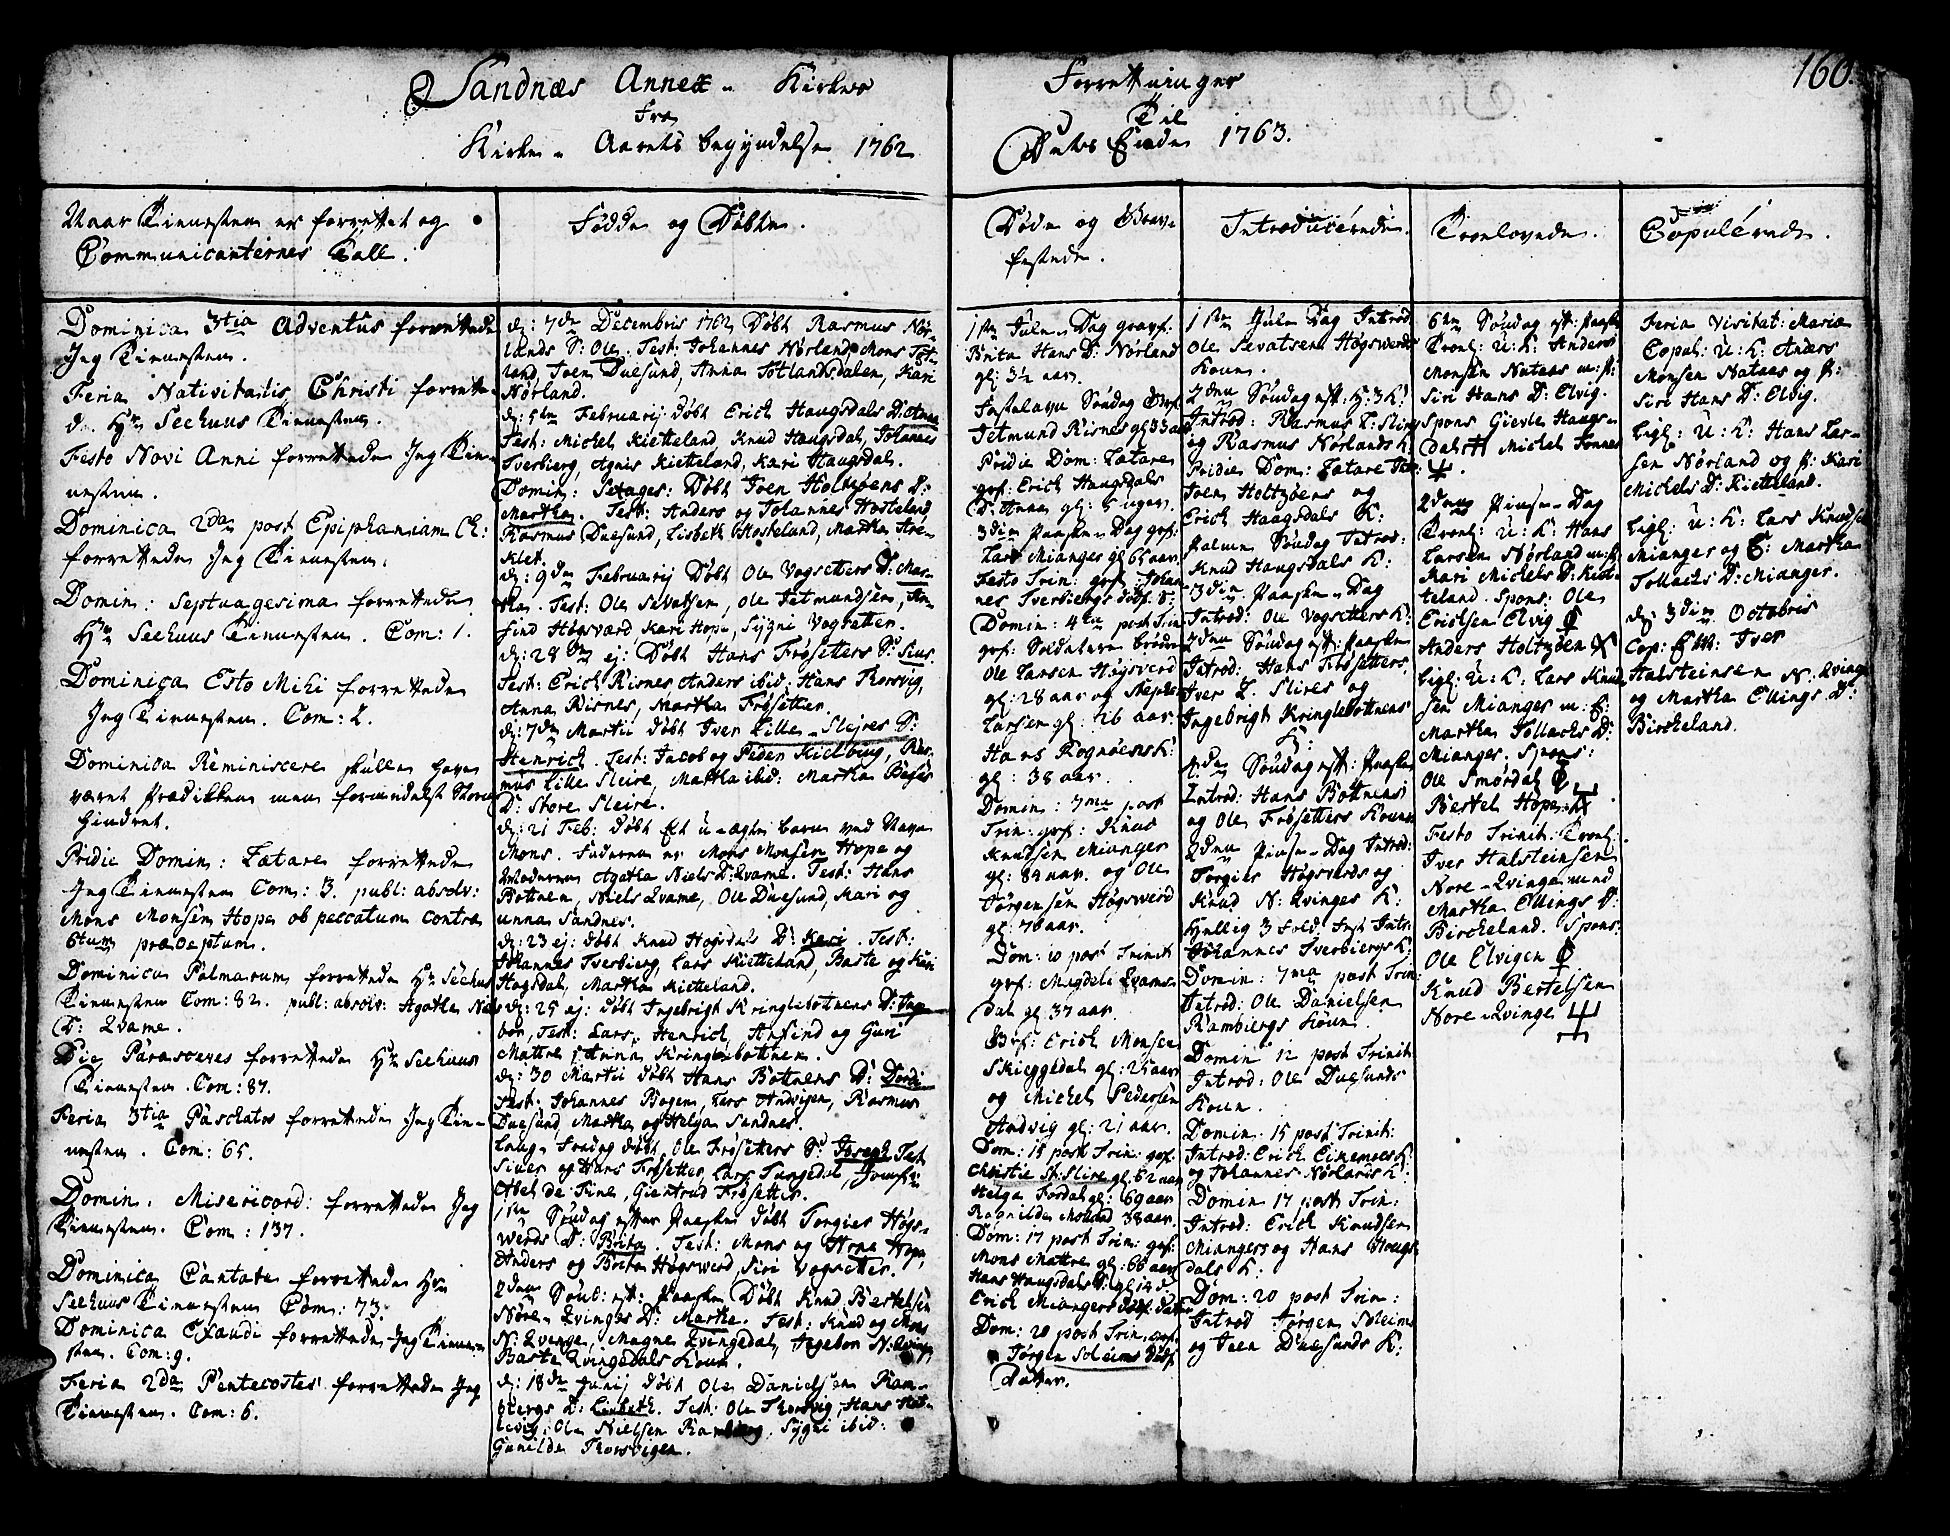 160.
Sandnæs Annex- Kirkes Forretninger
fra Til
Kirke- Aarets begyndelse 1762 Dets Ende 1763.
Naar Tienesten er forrettet og
Communicanternes Tall.
Dominica 3tia Adventus forrettede
Jeg Tienesten.
Feria Nativitatis Christi forrette-
de Hr Seehuus Tienesten.
Festo Novi Anni forrettede Jeg Tie-
nesten.
Dominica 2da post Epiphaniam Ch:
forrettede Jeg Tienesten.
Domin: Septuagesima forrettede
Hr Seehuus Tienesten. Com: 1.
Dominica Esto Mihi forrettede
Jeg Tienesten. Com: 2.
Dominica Reminiscere skulle have
været Prædikken men formedelst Storm
hindret.
Pridie Domin: Lætare forrettede
Jeg Tienesten Com: 3. publ: absolv:
Mons Monsen Hope ob peccatum contra
6tum præceptum.
Dominica Palmarum forrettede Hr Seehus
Tienesten Com: 82. publ: absolv: Agatha Niels
D: Qvame.
Die Parasceves forrettede Hr Seehuus
Tienesten Com: 87.
Feria 3tia Paschatos forrettede Jeg Tie-
nesten. Com: 65.
Domin. Misericord: forrettede Jeg
Tienesten. Com: 137.
Dominica Cantate forrettede Hr
Seehuus Tienesten Com: 73.
Dominica Exaudi forrettede Jeg Tiene-
sten. Com: 9.
Feria 2da Pentecostes forrettede Jeg
Tienesten. Com: 6.
Fødde og Døbte.
d: 7de Decembris 1762 Døbt Rasmus Nør-
lands S: Ole. Test: Johannes Nørland, Mons Tot-
land, Joen Duesund, Anna Totlandsdalen, Kari
Nørland.
d: 5te Februarij døbt Erich Haugsdals D: Anna
Test: Michel Kietteland, Knud Haugsdal, Johannes
Tverbierg, Agnis Kietteland, Kari Haugsdal.
Domin: Sexages: Døbt Joen Holtzøens D:
Martha. Test: Anders og Johannes Hosteland,
Rasmus Duesund, Lisbeth Hosteland, Martha
d: 9de Februarij Døbt Ole Vogsetters D: Mar-
tha. Test: Ole Sevatsen, Ole Jetmundsen, An-
find Høgsværd Kari Hope, Sygni Vogsetter.
d: 28de ej: Døbt Hans Frøsetters S: Sius.
Test: Erich Risnes Anders ibid: Hans Thorsvig,
Anna Risnes, Martha Frøsetter.
d: 7de Martii døbt Iver Lille-Slejres S:
Henrich. Test: Jacob og Peder Kielbyug, Ras-
mus Lille Sleire, Martha ibid: Martha
D: Store Sleire.
d: 21 Feb: døbt Et u-ægte barn ved Navn
Mons. Faderen er Mons Monsen Hope og
Moderen Agatha Niels D: Qvame. Test: Hans
Bottnen, Niels Qvame, Ole Duesund, Kari og
Anna Sandnes.
d: 23 ej: døbt Knud Hogsdals D: Kari. Test:
Johannes Tverbierg, Lars Kietteland, Baste og Kari
Hogsdal, Martha Kietteland.
d: 25 ej: døbt Ingebrigt Kringlebotnens D: Inge-
bor, Test: Lars, Henrich, Anfind og Guri
Mattre, Anna Kringlebottnen.
d: 30 Martii døbt Hans Bottnens D: Dordi
Test: Johannes Bogen, Lars Andvigen, Rasmus
Duesund, Martha og Helga Sandnes.
Lang-Fredag døbt Ole Frøsetters S: Joseph Test
Siver og Hans Frøsetter, Lars Tangedal, Jomfru
Abel de Fine, Giertrud Frøsetter.
1ste Søndag efter Paaske døbt Torgies Høgs-
werds D: Brita. Test: Mons og Arne Hope,
Anders og Brita Høgswerd, Siri Vogsetter.
2den Sønd: eft: Paaske Døbt Knud Bertelsen
Nore-Qvinges D: Martha. Test: Knud og Mons
N: Qvinge, Magne Qvingedal, Ingebor N: Qvinge,
Baste Qvingedals Kone.
d: 18de Junij Døbt Ole Danielsen Ram-
bergs D: Lisbeth. Test: Ole Thorsvig, Hans
Ole Nielsen Ramberg, Sygni ibid:
Gunilda Thorsvigen.
Døde og Grav-
festede.
1ste Jule-Dag gravf:
Brita Hans D: Nørland
gl: 3½ aar.
Fastelavn Søndag Grf:
Jetmund Risnes gl: 33 aar
Pridie Dom: Lætare
grf: Erich Haugsdals
D: Anna gl: 5 uger.
3die Paaske-Dag grf:
Lars Mianger gl 65 aar.
Festo Trin: grf: Johan-
nes Tverbiergs dødf: S:
Domin: 4ta post Trin
grf: Soldaterne brødre
Ole Larsen Høgsverd
gl: 28 aar og Stephen
Larsen gl: 26 aar.
Hans Rognøens K:
gl: 38 aar.
Domin: 7ma post
Trin: grf: Knud
Knudsen Mianger
gl: 84 aar. og Ole
Jørgensen Høgsverd
gl: 76 aar.
Dom: 10 post Trinit
grf: Magdeli Qvams-
dal gl 37 aar.
Grf: Erich Monsen
Skieggedal gl: 25 aar
og Michel Pedersen
Andvig gl: 21 aar.
Dom: 15 post Trin: grf:
Christie St: Slire gl: 62 aar
Helga Fordal gl: 69 aar
Ragnilde Molund 38 aar.
Dom: 17 post Trin: grf:
Mons Mattre gl: 66 aar
Hans Haugsdals S: gl 14 d.
Erich Miangers dødf: datter
Dom: 20 post Trin, grf:
Jørgen Soleims dødf:
Datter.
Introducerede.
1ste Jule Dag Introd
Ole Sevatsens Høgsverds
Kone.
2den Søndag eft: H: 3 K:
Introd: Rasmus L: Slires
og Rasmus Nørlands K:
Pridie Dom: Lætare Int:
Joen Holtzøens og
Erich Haagsdals K:
Palme Søndag Introd:
Knud Haugsdals K:
3die Paaske-Dag
Introd: Ole Vogsetters K:
2den Søndag eft: Paaske
Introd: Hans Frøsetters.
Iver L. Slires og
Ingebrigt Kringlebottnens
K:
4de Søndag eft: Paaske
Introd: Hans Bottnens
og Ole Frøsetters Koner
2den Pinse-Dag Introd:
Torgies Høgsverds og
Knud N: Qvinges K:
Hellig 3 fold: Fest Intr:
Johannes Tverbiergs K:
Domin: 7ma post Trin:
Introd: Ole Danielsen
Rambergs Kone.
Domin 12 post Trinit:
Introd: Ole Duesunds
Kone.
Domin: 15 post Trinit:
Introd: Erich Eikemoes K:
og Johannes Nørlands K:
Domin 17 post Trin:
Introd: Erich Knudsen
Miangers og Hans Hougs-
dals K:
Dom: 20 post Trin:
Introd Jørgen Soleims
og Joen Duesunds K:
Troelovede.
6te Søndag eft: Paaske
Troel: U: K: Anders
Monsen Nataas m: P:
Siri Hans D: Elvig.
Spons Gievle Haags-
dal Michel Fonnes
2den Pinse-Dag
Troel: U: K: Hans
Larsen Nørland m: P:
Kari Michels D: Kiet-
teland. Spons: Ole
Erichsen Elvig
Anders Holtzøen
ligl: U: K: Lars Knud-
sen Mianger m: E:
Martha Tollachs D:
Mianger, Spons:
Ole Smørdal
Bertel Hope
Festo Trinit: Troel:
Iver Halsteinsen
Nore-Qvinge med
Martha Ellings D:
Bircheland. Spons:
Ole Elvigen
Knud Bertelsen
Nore-Qvinge
Copulerede.
Feria Visitat: Mariæ
Copul: U: K: Anders
Monsen Nataas og P:
Siri Hans D: Elvig.
ligl: U: K: Hans Lar-
sen Nørland og P: Kari
Michels D: Kietteland.
ligl: U: K: Lars Knudsen
Mianger og E: Martha
Tollachs D: Mianger.
d: 3die Octobris
Cop: Iver
Halsteinsen N: Qvinge
og Martha Ellings D:
Bircheland.